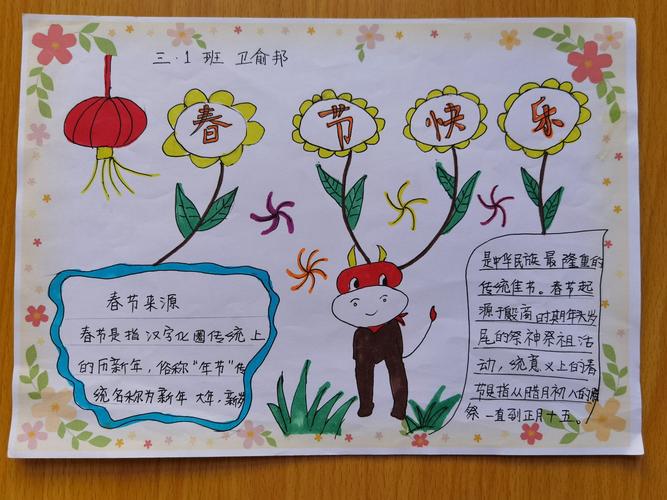 三.1 班 卫俞邦
春 节 快 乐
春节来源
春节是指汉字化圈传统上
的历新年，俗称“年节”传
统名称为新年 大年，新岁
是中华民族最隆重的
传统佳书。春节起
源于殷商时期年头岁
尾的祭神祭祖活
动，统意义上的春
节是指从腊月初八的腊
祭 一直到正月十五。